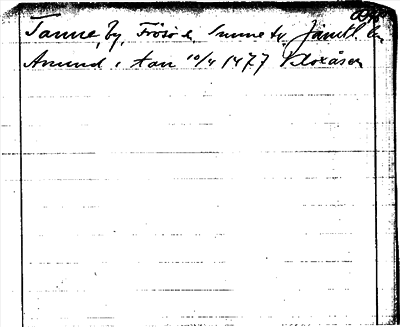 Tanne, by, Frösö s. Sunne tg, Jämtl. l.
Amund i tan 10/4 1477 Kloxåsen